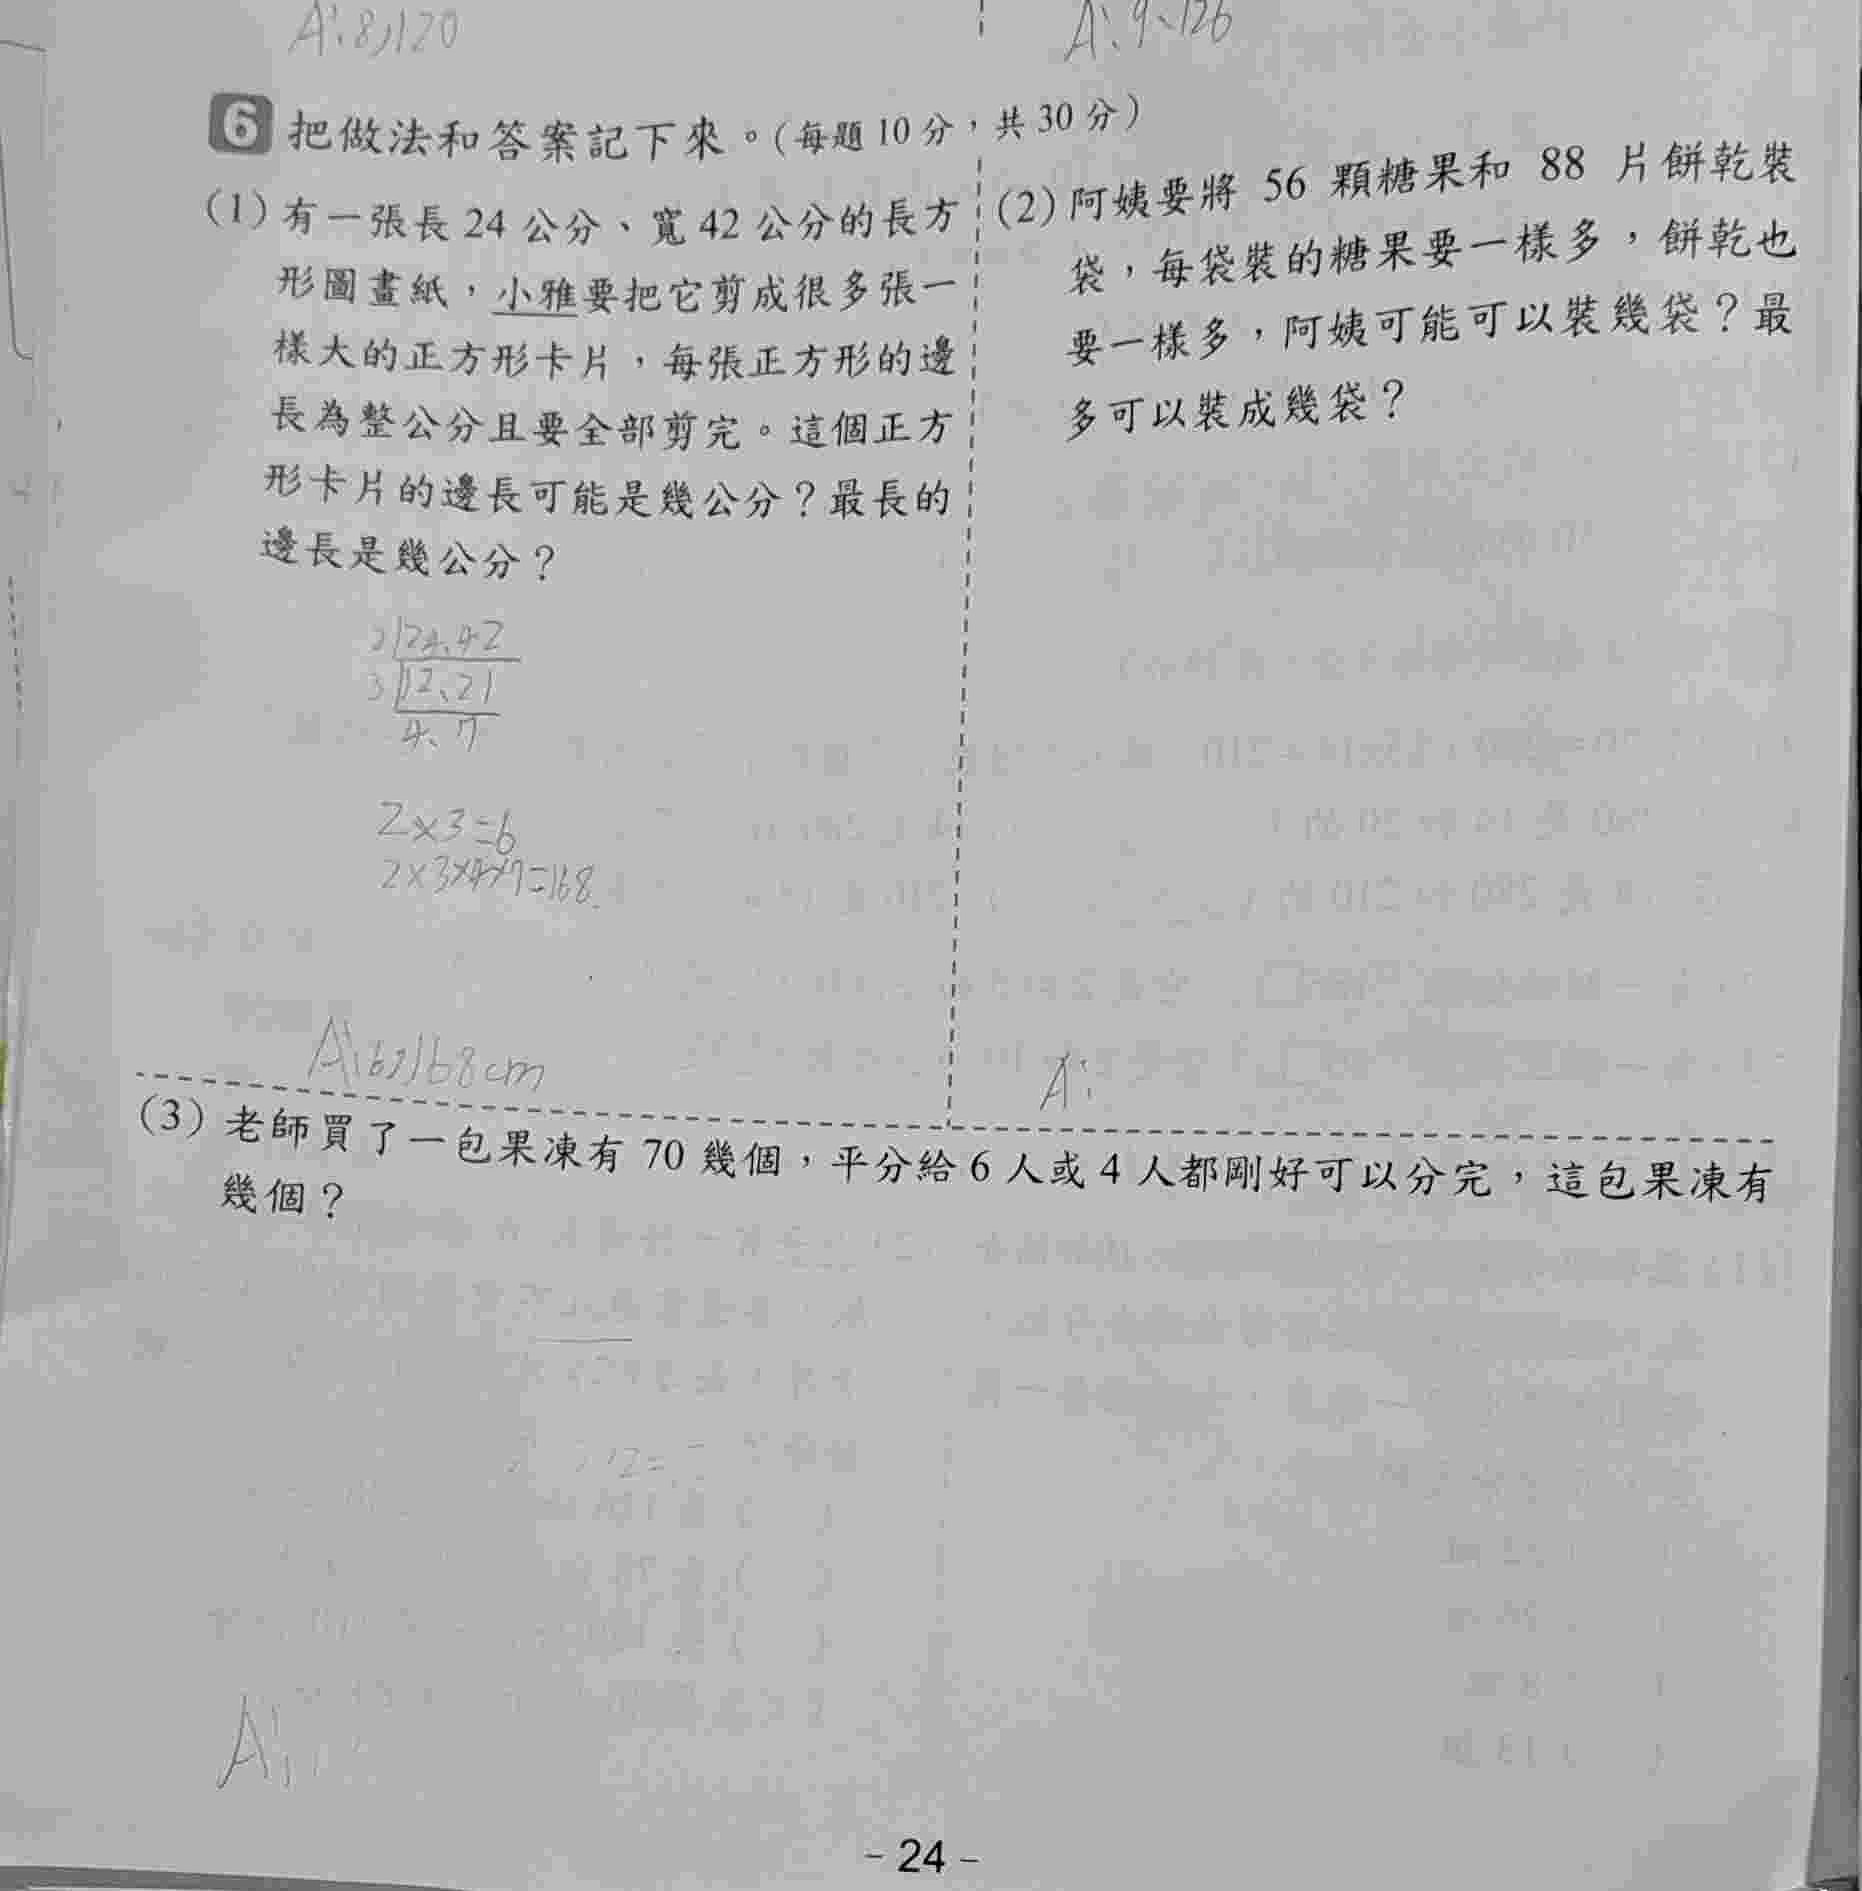 A:8,120
A:9、126
6 把做法和答案記下來。(每題10分,共30分)
(1)有一張長24公分、寬42公分的長方
形圖畫紙,小雅要把它剪成很多張一
樣大的正方形卡片,每張正方形的邊
長為整公分且要全部剪完。這個正方
形卡片的邊長可能是幾公分?最長的
邊長是幾公分?
2 24、42
3 12、21
4、7
2×3=6
2×3×4×7=168
A:6,168cm
(2)阿姨要將 56 顆糖果和 88 片餅乾裝
袋,每袋裝的糖果要一樣多,餅乾也
要一樣多,阿姨可能可以裝幾袋?最
多可以裝成幾袋?
A:
(3)老師買了一包果凍有70幾個,平分給6人或4人都剛好可以分完,這包果凍有
幾個?
A:
- 24 -